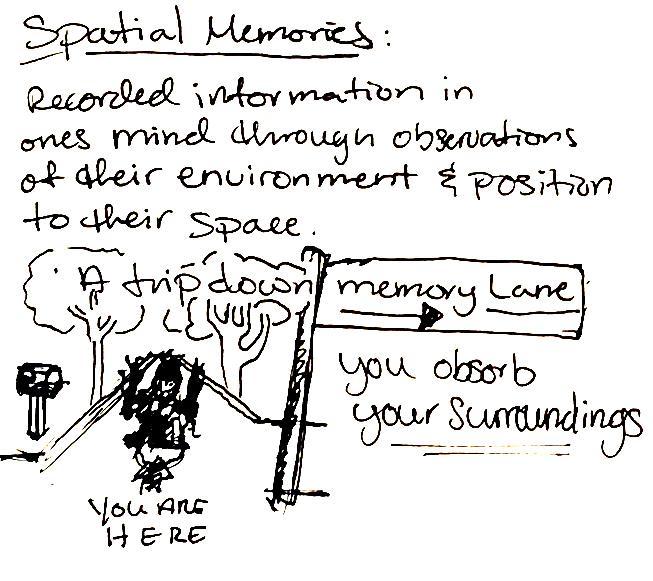 Spatial Memories:
Recorded information in
ones mind through observations
of their environment & position
to their space.
A trip down memory Lane
you absorb
your surroundings
YOU ARE
HERE